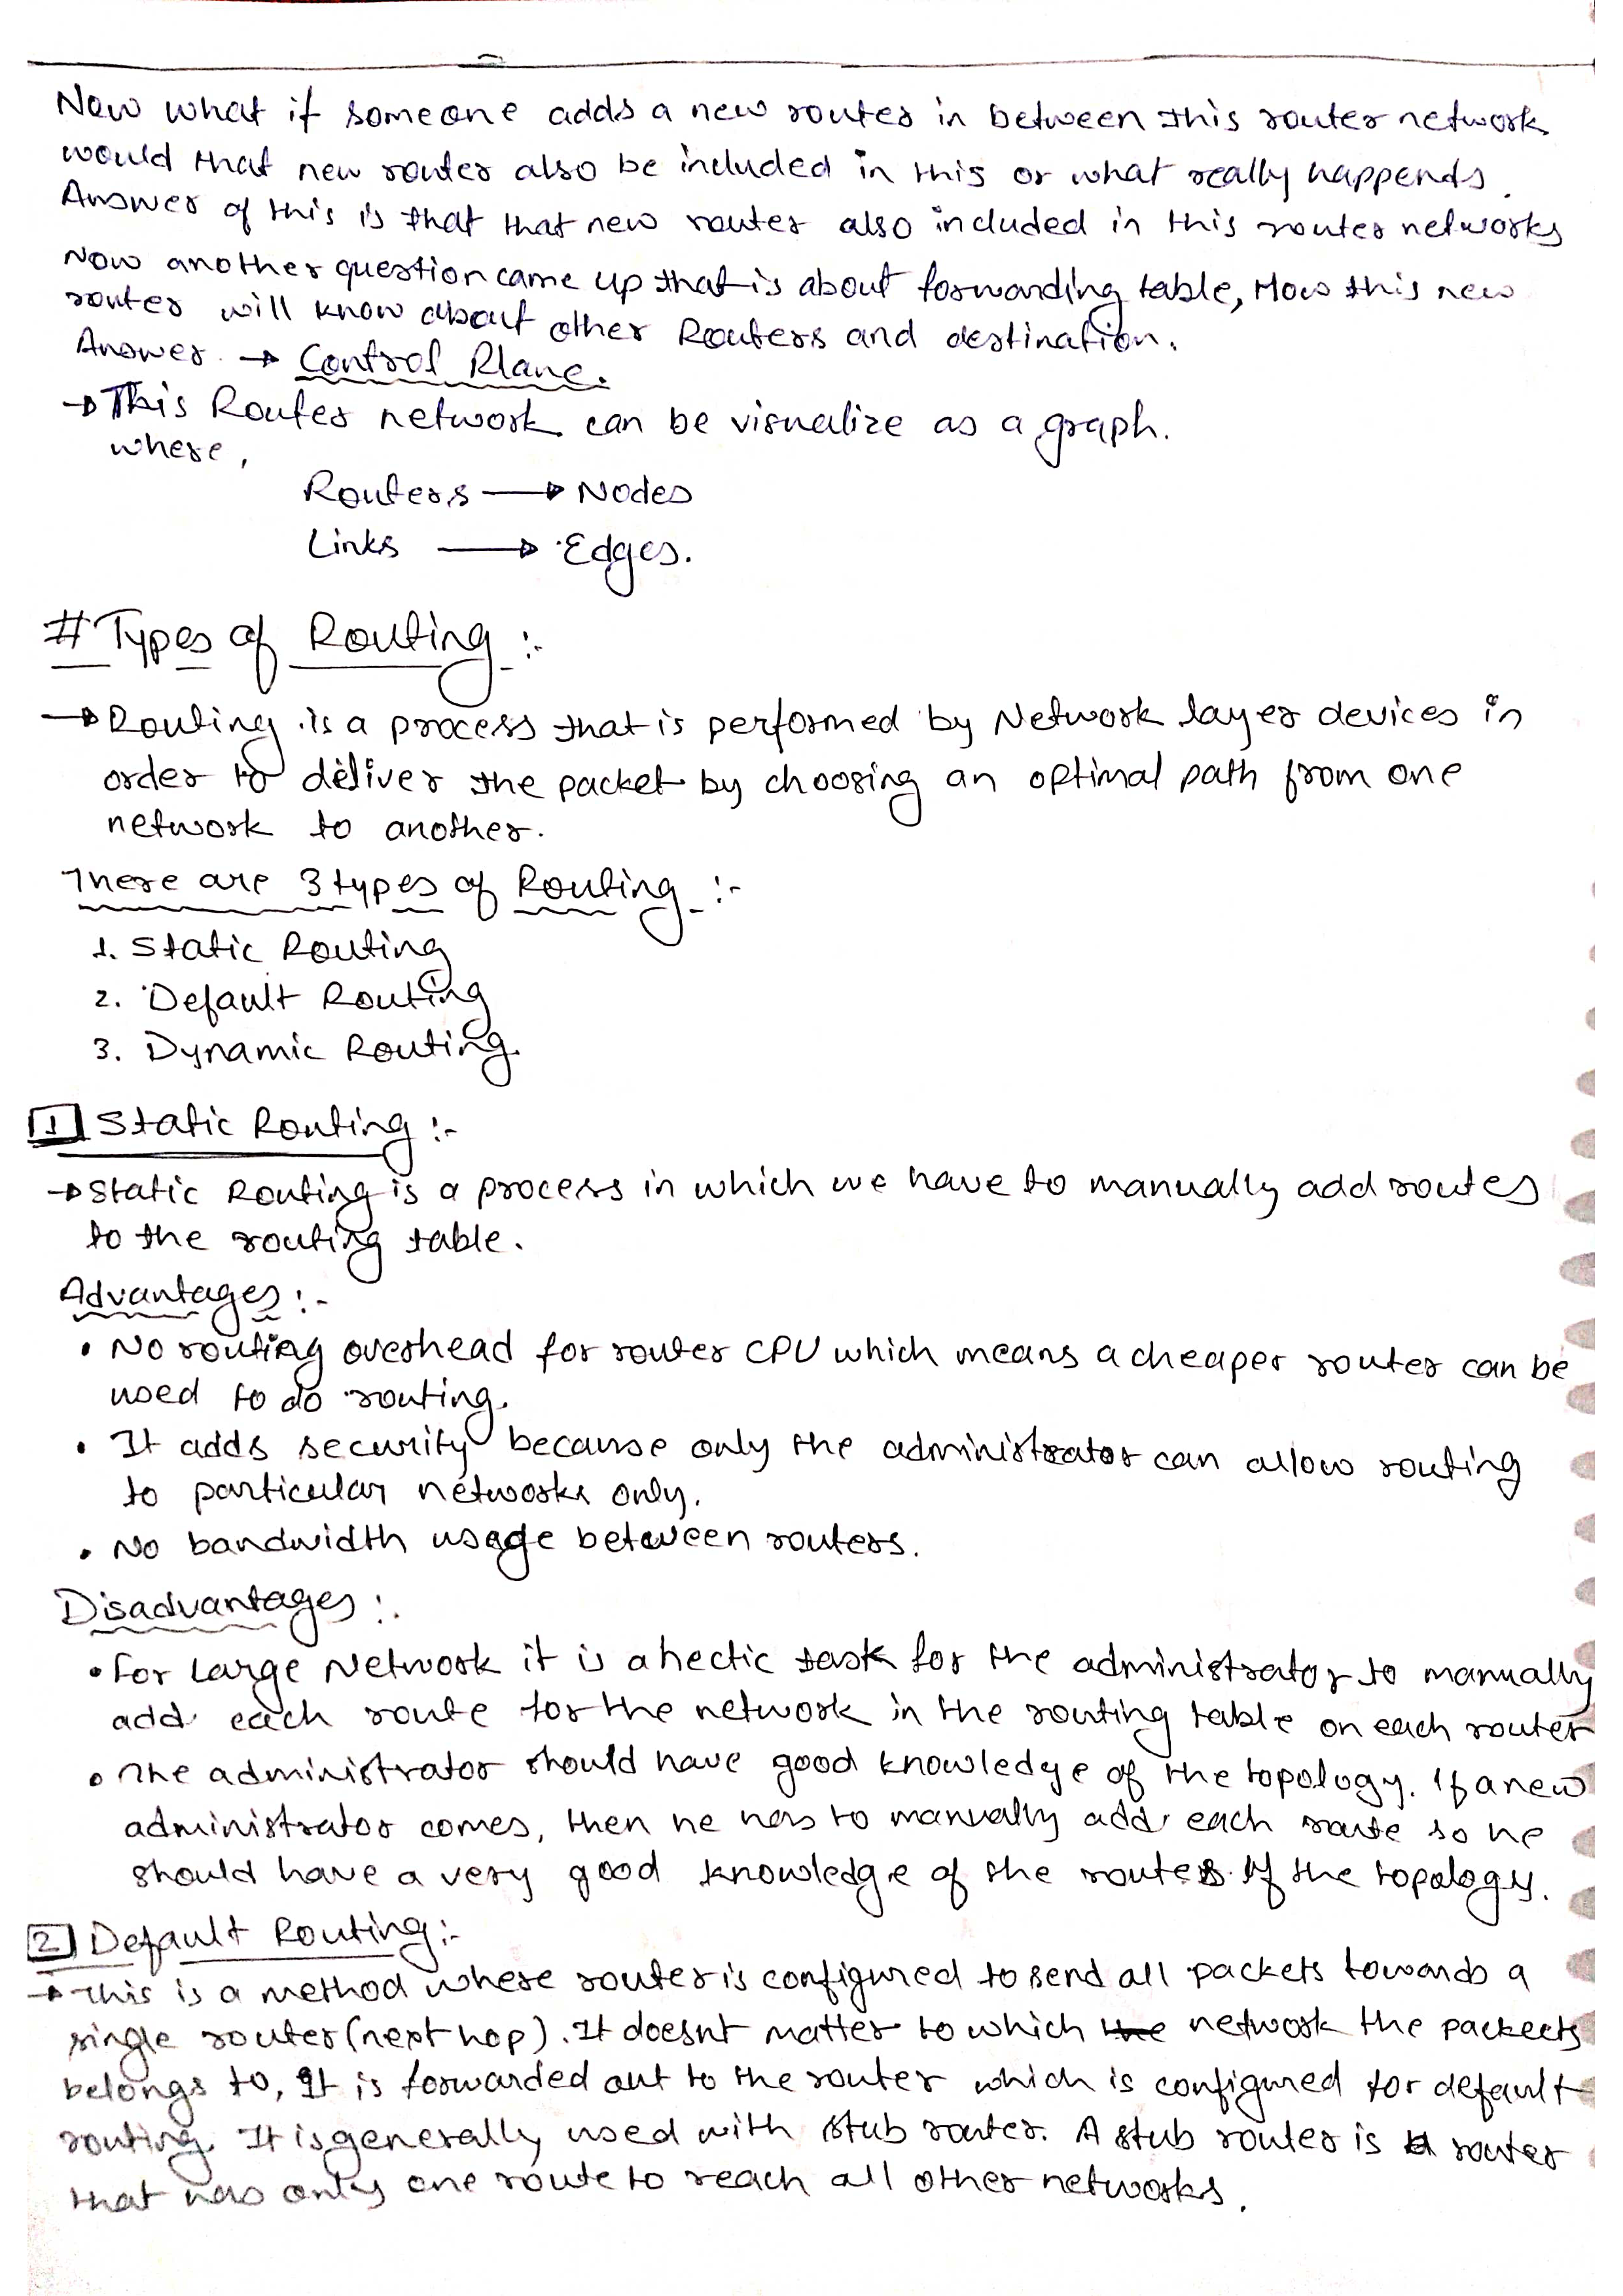 Now what if someone adds a new router in between this router network
would that new router also be included in this or what really happends.
Answer of this is that that new router also included in this router networks
Now another question came up that is about forwarding table, How this new
router will know about other Routers and destination.
Answer → Control Plane.
→ This Router network can be visualize as a graph.
where,
Routers → Nodes
Links → Edges.
# Types of Routing :-
→ Routing is a process that is performed by Network layer devices in
order to deliver the packet by choosing an optimal path from one
network to another.
There are 3 types of Routing :-
1. Static Routing
2. Default Routing
3. Dynamic Routing.
1 Static Routing :-
→ Static Routing is a process in which we have to manually add routes
to the routing table.
Advantages :-
• No routing overhead for router CPU which means a cheaper router can be
used to do routing.
• It adds security because only the administrator can allow routing
to particular networks only.
• No bandwidth usage between routers.
Disadvantages :-
• For Large Network it is a hectic task for the administrator to manually
add each route for the network in the routing table on each router
• The administrator should have good knowledge of the topology. If a new
administrator comes, then he has to manually add each route so he
should have a very good knowledge of the routes of the topology.
2 Default Routing :-
→ This is a method where router is configured to send all packets towards a
single router (next hop). It doesnt matter to which the network the packects
belongs to, It is forwarded out to the router which is configured for default
routing. It is generally used with stub router. A stub router is a router
that has only one route to reach all other networks.